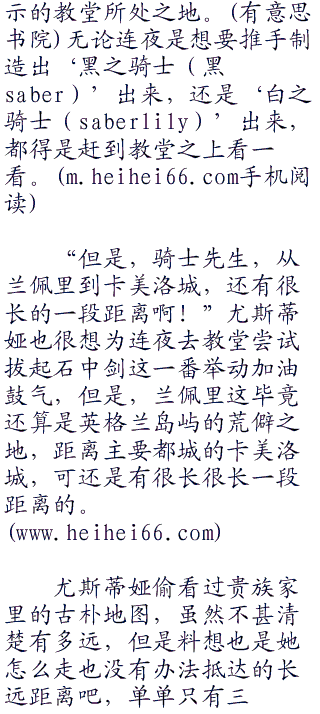 示的教堂所处之地。(有意思
书院)无论连夜是想要推手制
造出‘黑之骑士（黑
saber）’出来，还是‘白之
骑士（saberlily）’出来，
都得是赶到教堂之上看一
看。(m.heihei66.com手机阅
读)
“但是，骑士先生，从
兰佩里到卡美洛城，还有很
长的一段距离啊！”尤斯蒂
娅也很想为连夜去教堂尝试
拔起石中剑这一番举动加油
鼓气，但是，兰佩里这毕竟
还算是英格兰岛屿的荒僻之
地，距离主要都城的卡美洛
城，可还是有很长很长一段
距离的。
(www.heihei66.com)
尤斯蒂娅偷看过贵族家
里的古朴地图，虽然不甚清
楚有多远，但是料想也是她
怎么走也没有办法抵达的长
远距离吧，单单只有三